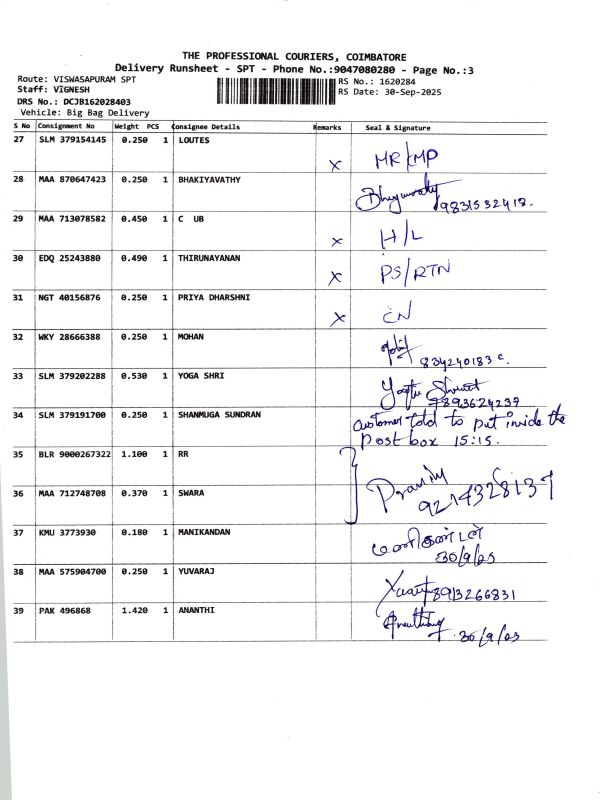 THE PROFESSIONAL COURIERS, COIMBATORE
Delivery Runsheet - SPT - Phone No.:9047080280 - Page No.:3
Route: VISWASAPURAM SPT
Staff: VIGNESH
DRS No.: DCJB162028403
Vehicle: Big Bag Delivery
RS No.: 1620284
RS Date: 30-Sep-2025
S No Consignment No Weight PCS Consignee Details Remarks Seal & Signature
27 SLM 379154145 0.250 1 LOUTES x MR/KMP
28 MAA 870647423 0.250 1 BHAKIYAVATHY 9831532418.
29 MAA 713078582 0.450 1 C UB x H/L
30 EDQ 25243880 0.490 1 THIRUNAYANAN x PS/RTN
31 NGT 40156876 0.250 1 PRIYA DHARSHNI x CN
32 WKY 28666388 0.250 1 MOHAN 834240183
33 SLM 379202288 0.530 1 YOGA SHRI 7893624237
34 SLM 379191700 0.250 1 SHANMUGA SUNDRAN customer told to put inside the
Post box 15:15.
35 BLR 9000267322 1.100 1 RR
36 MAA 712748708 0.370 1 SWARA 9214328137
37 KMU 3773930 0.180 1 MANIKANDAN மணிகண்டன்
30/9/25
38 MAA 575904700 0.250 1 YUVARAJ 8913266831
39 PAK 496868 1.420 1 ANANTHI 30/9/25